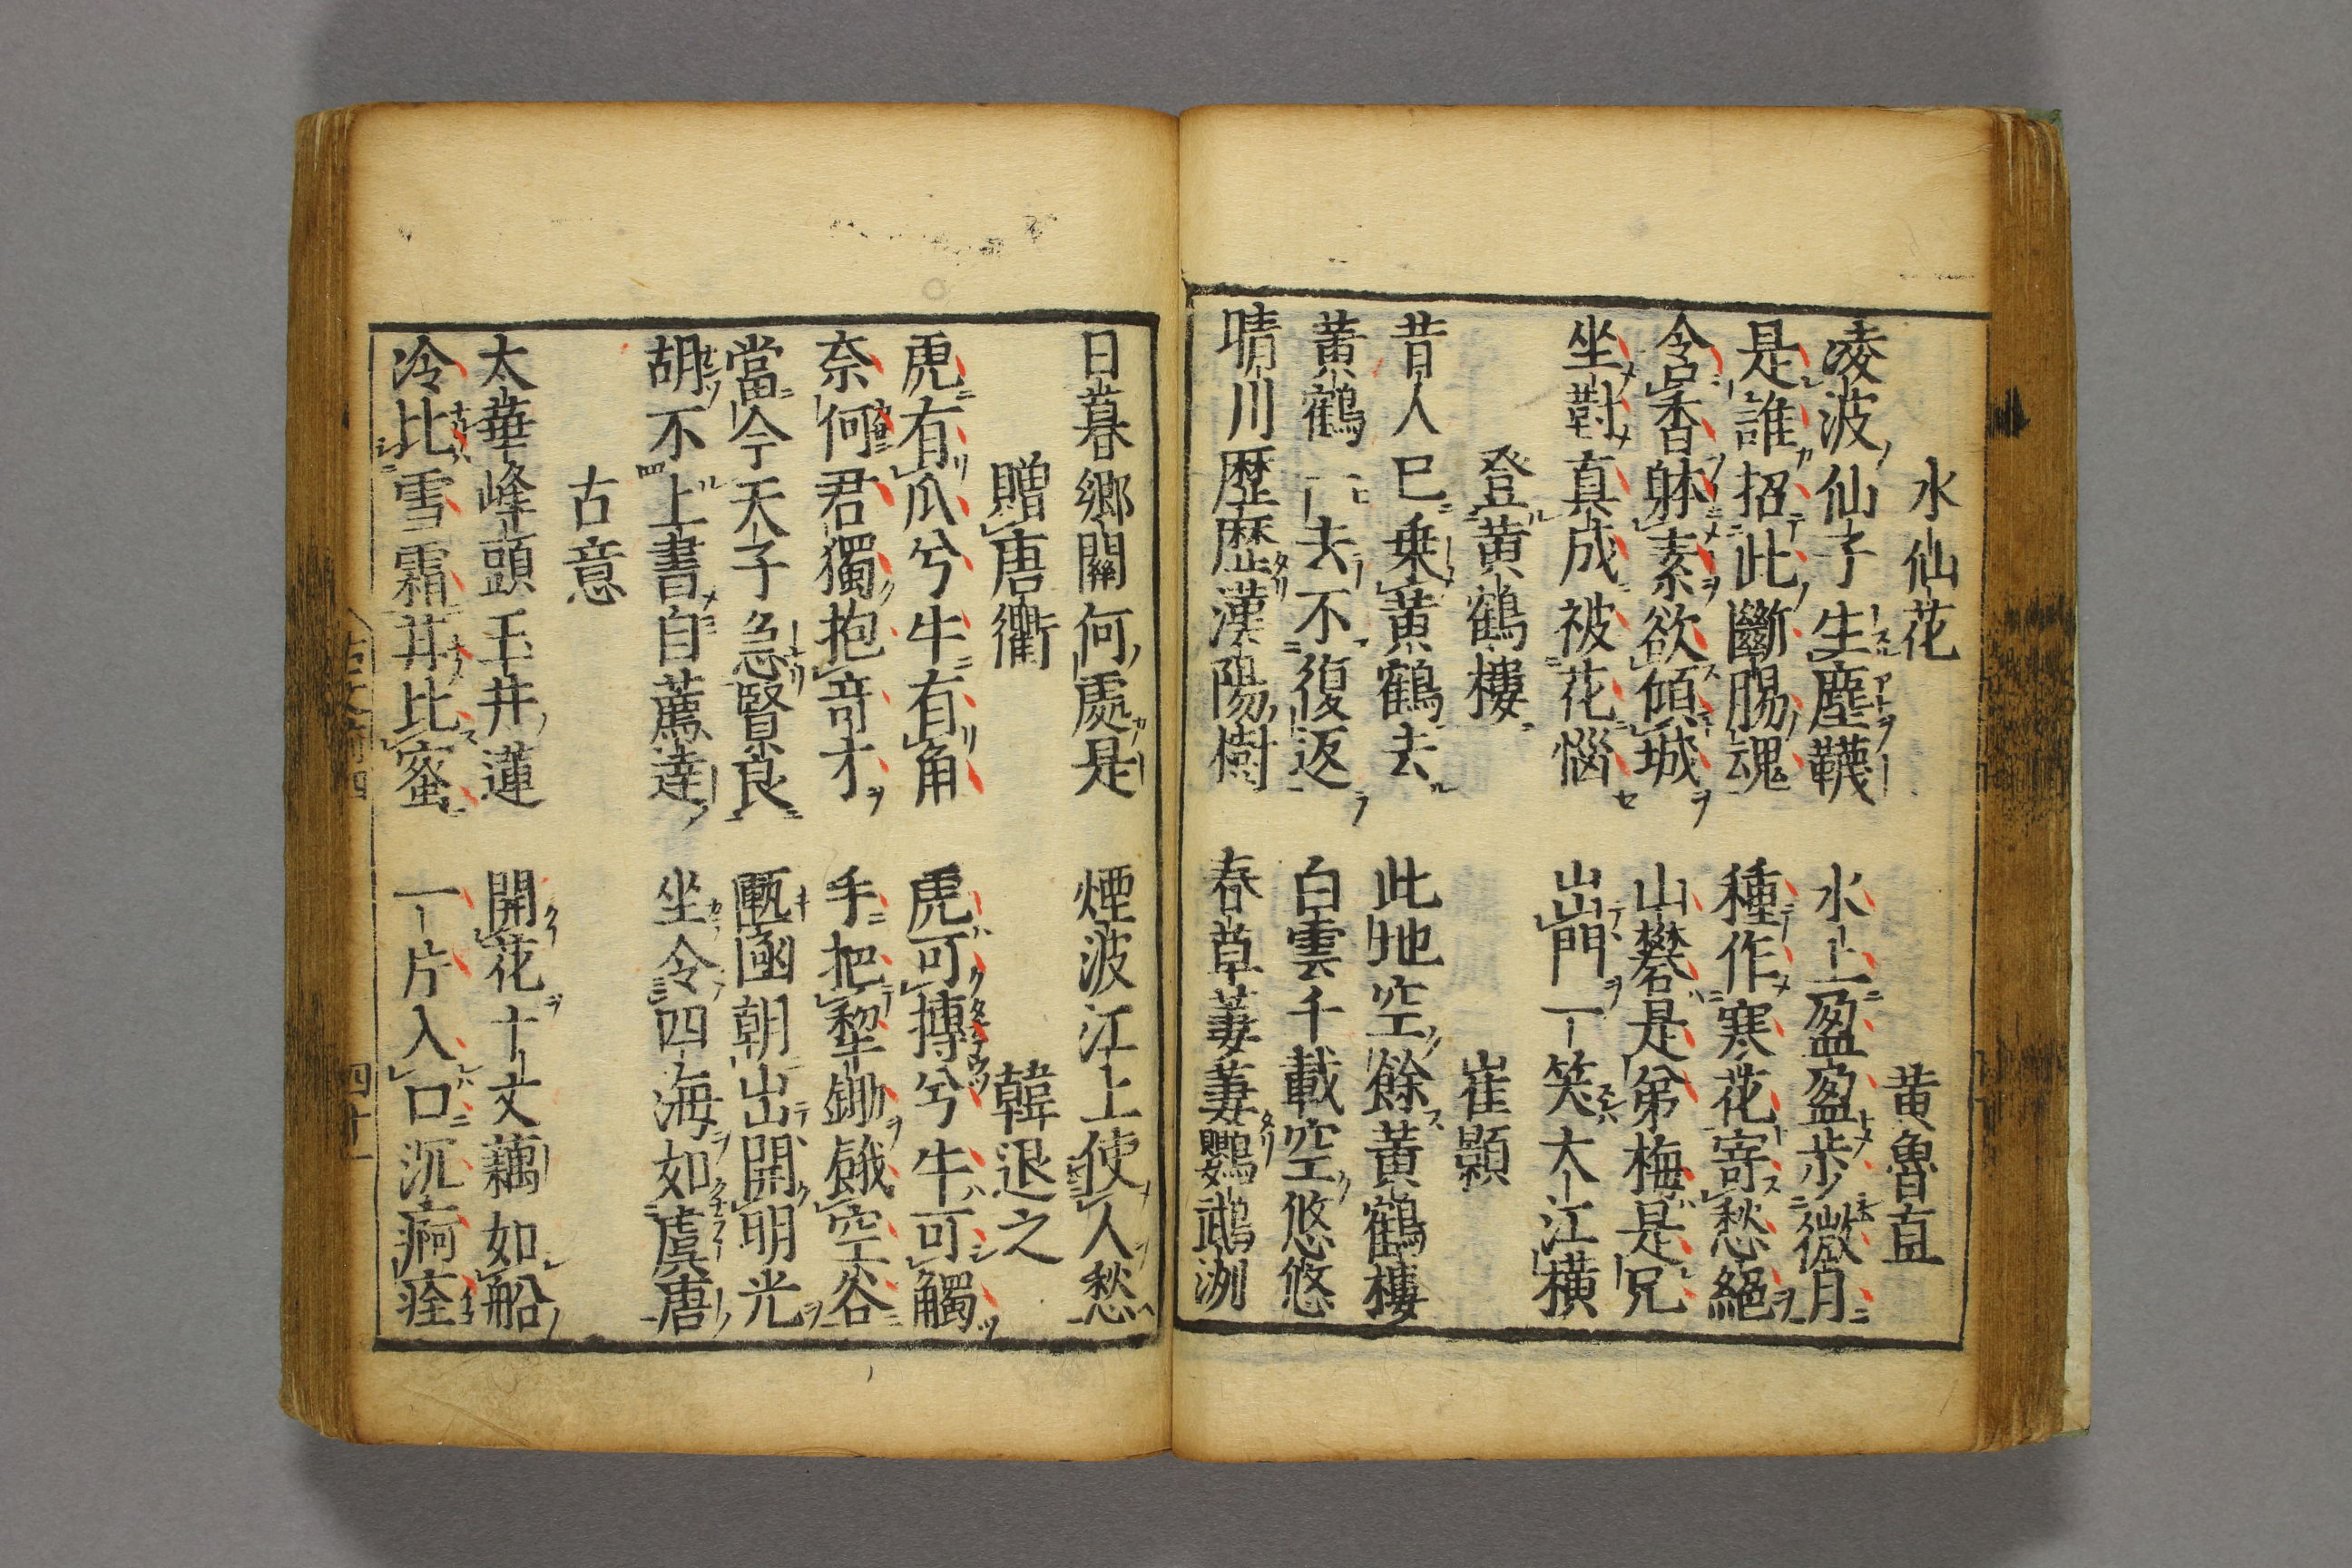 水仙花　黄魯直
凌波仙子生塵韈　水上盈盈歩微月
是誰招此斷腸魂　種作寒花寄愁絕
含香躰素欲傾城　山礬是弟梅是兄
坐對真成被花惱　出門一笑大江横
登黄鶴樓　崔顥
昔人已乗黄鶴去　此地空餘黄鶴樓
黄鶴一去不復返　白雲千載空悠悠
晴川歴歴漢陽樹　春草萋萋鸚鵡洲
日暮郷關何處是　煙波江上使人愁
贈唐衢　韓退之
虎有爪兮牛有角　虎可搏兮牛可觸
奈何君獨抱竒才　手把犂鋤餓空谷
當今天子急賢良　匭凾朝出開明光
胡不上書自薦達　坐令四海如虞唐
古意
太華峰頭玉井蓮　開花十丈藕如船
冷比雪霜甘比蜜　一片入口沉痾痊